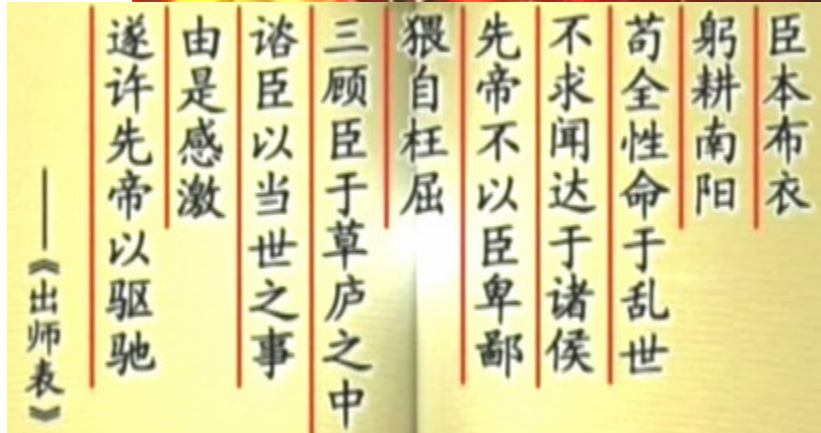 臣本布衣
躬耕南阳
苟全性命于乱世
不求闻达于诸侯
先帝不以臣卑鄙
猥自枉屈
三顾臣于草庐之中
谘臣以当世之事
由是感激
遂许先帝以驱驰
——《出师表》